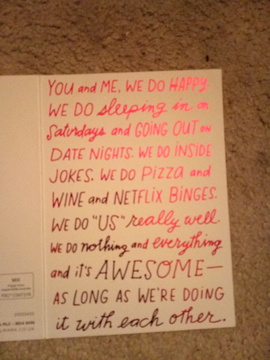 YOU and ME. WE DO HAPPY.
WE DO sleeping in on
Saturdays and GOING OUT on
DATE NIGHTS. WE DO INSIDE
JOKES. WE DO PIZZA and
WINE and NETFLIX BINGES.
WE DO "US" really well.
WE DO nothing and everything
and it's AWESOME—
AS LONG AS WE'RE DOING
it with each other.